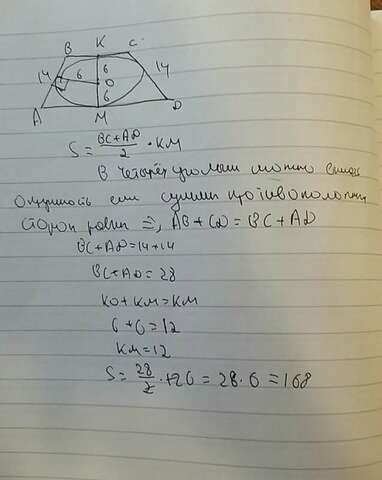 B K C
14 6 6 14
O
6
A M D
S = BC+AD/2 · KM
В четырёхугольник можно вписать
окружность если суммы противоположных
сторон равны ⇒, AB + CD = BC + AD
BC + AD = 14 + 14
BC + AD = 28
KO + KM = KM
6 + 6 = 12
KM = 12
S = 28/2 · = 28 · 6 = 168